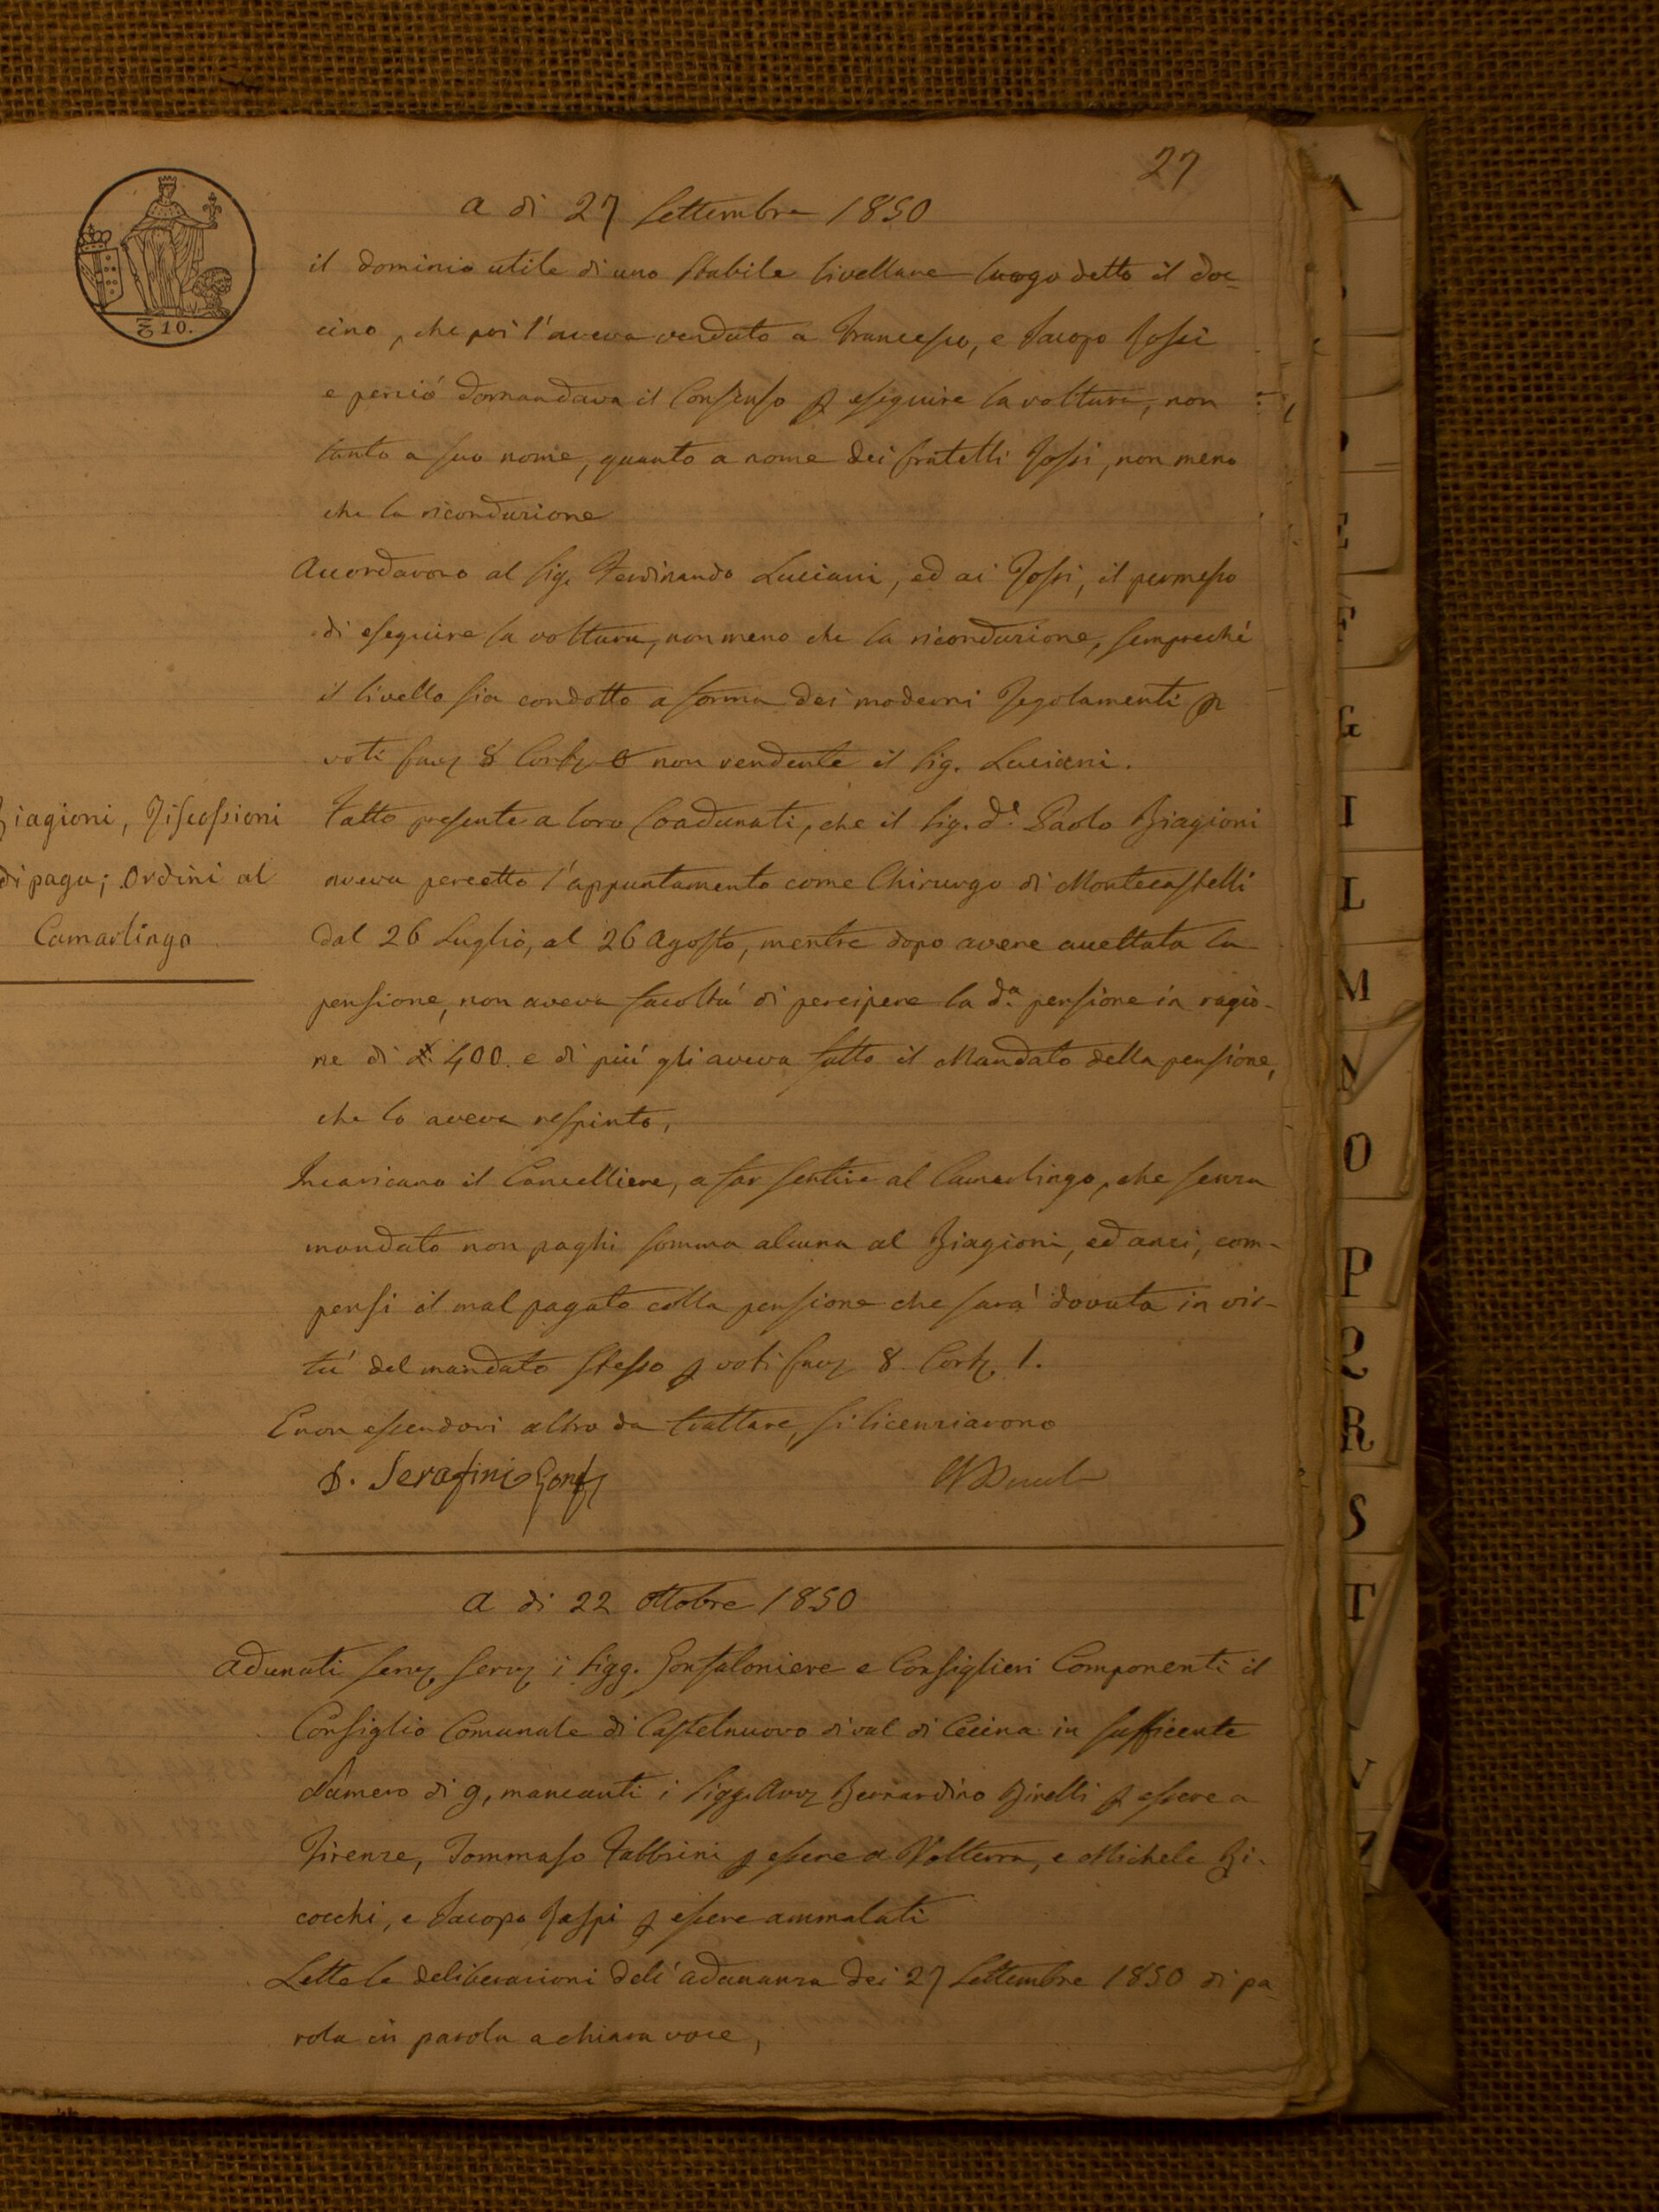 27
A dì 27 Settembre 1850
il dominio utile di uno stabile livellare luogo detto il doc=
cino, che poi l'aveva venduto a Francesco, e Jacopo Rossi
e perciò domandava il Consenso p eseguire la voltura, non
tanto a suo nome, quanto a nome dei fratelli Rossi, non meno
che la riconduzione
Accordarono al Sig. Ferdinando Luciani, ed ai Rossi, il permesso
di eseguire la voltura, non meno che la riconduzione, sempreché
il livello sia condotto a forma dei moderni Regolamenti p
voti fav 8 Cont 0 non rendente il Sig. Luciani.
Biagioni, Riscossioni
di paga; Ordini al
Camarlingo
Fatto presente a loro Coadunati, che il Sig. D. Paolo Biagioni
aveva percetto l'appuntamento come Chirurgo di Montecastelli
dal 26 Luglio, al 26 Agosto, mentre dopo avere accettata la
pensione, non aveva facoltà di percipere la da pensione in ragio-
ne di £ 400. e di più gli aveva fatto il Mandato della pensione,
che lo aveva respinto,
Incaricano il Cancelliere, a far sentire al Camarlingo, che senza
mandato non paghi somma alcuna al Biagioni, ed anzi, com-
pensi il mal pagato colla pensione che sarà dovuta in vir-
tù del mandato stesso p voti fav 8. Cont. 1.
E non essendovi altro da trattare, si licenziarono
D. Serafini Gonf
A dì 22 Ottobre 1850
Adunati serv. serv i Sigg. Gonfaloniere e Consiglieri Componenti il
Consiglio Comunale di Castelnuovo di val di Cecina in sufficente
Numero di 9, mancanti i Sigg. Avv Bernardino Birelli p essere a
Firenze, Tommaso Fabbrini p essere a Volterra, e Michele Bi-
cocchi, e Jacopo Raspi p essere ammalati
Lette le deliberazioni dell'adunanza dei 27 Settembre 1850 di pa-
rola in parola a chiara voce,
10.
A
E
F
G
I
L
M
N
O
P
Q
R
S
T
V
Z